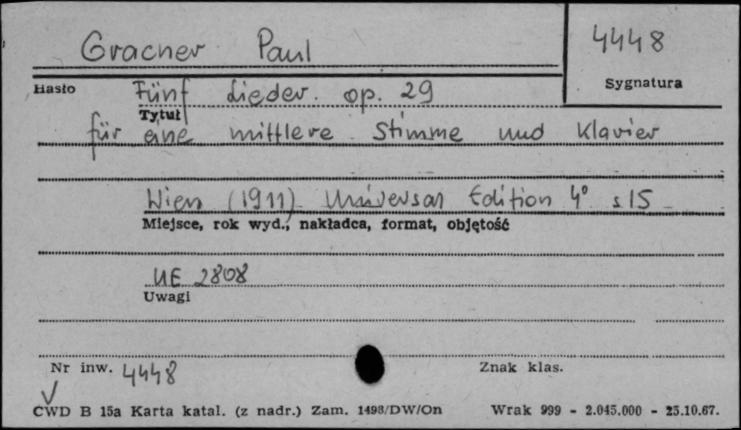 Graener Paul
4448
Hasło
Sygnatura
Fünf Lieder. op. 29
Tytuł
für eine mittlere Stimme und Klavier
Wien (1911) Universal Edition 4° s 15
Miejsce, rok wyd., nakładca, format, objętość
UE 2808
Uwagi
Nr inw. 4448
Znak klas.
CWD B 15a Karta katal. (z nadr.) Zam. 1498/DW/On
Wrak 999 - 2.045.000 - 25.10.67.